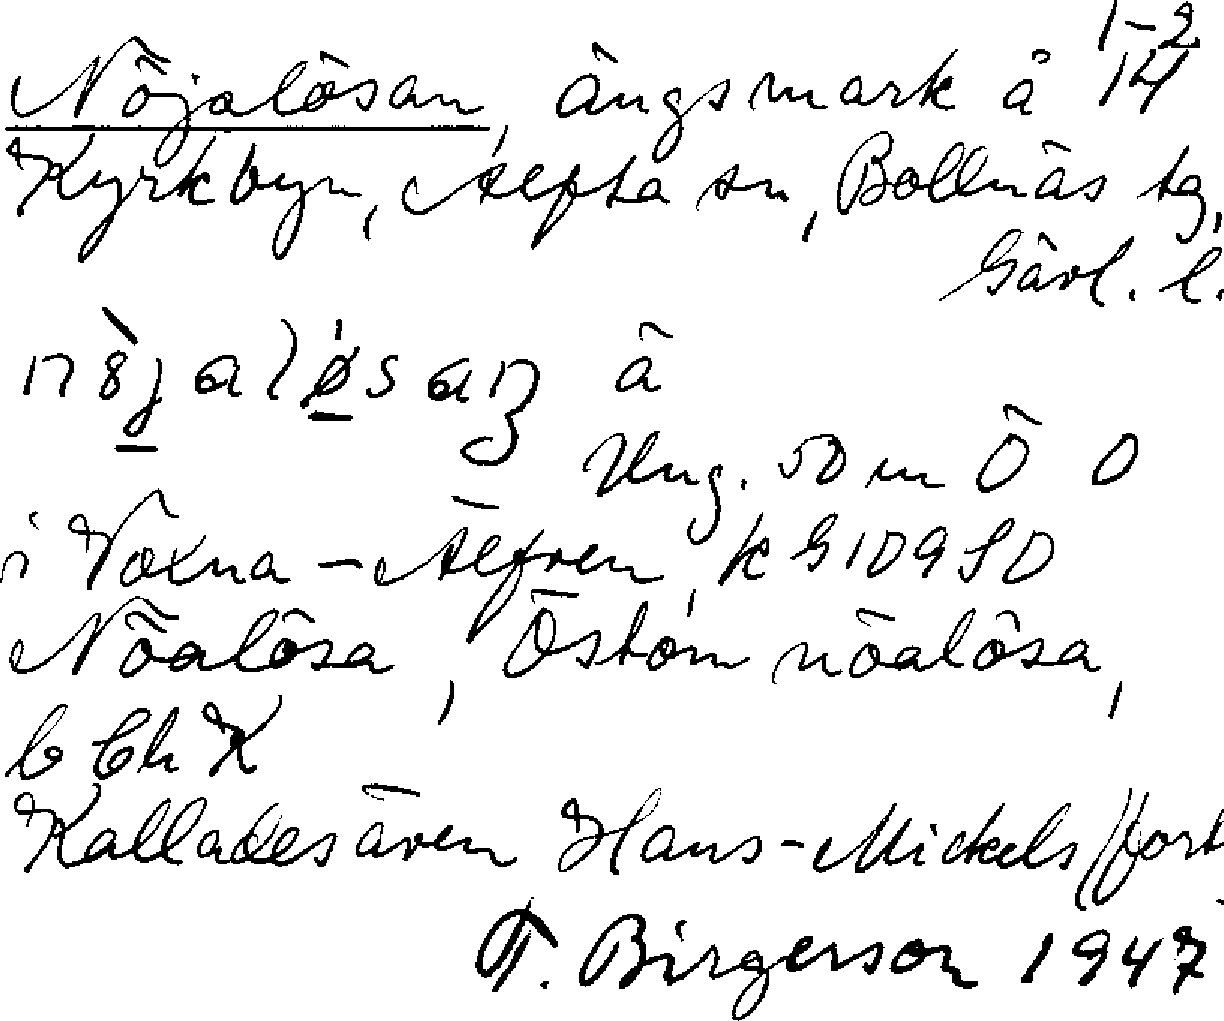 1-2
Nöjalösan, ängsmark å 14
Kyrkbyn, Alfta sn, Bollnäs tg,
Gävl. l.
å
Ung. 50 m Ö O
i Voxna-Älfven, k G10950
Nöalösa, Östom nöalösa,
b Ch K
Kallades även Hans-Mickels /fort
T. Birgerson 1947